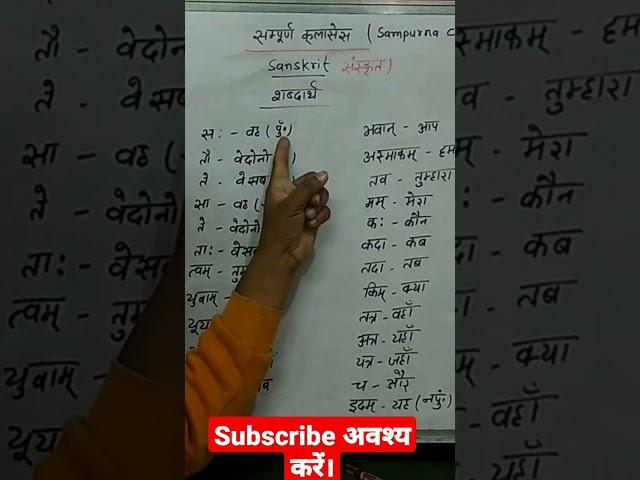 सम्पूर्ण क्लासेस (Sampurna C
Sanskrit संस्कृत)
शब्दार्थ
सः - वह (पुँ॰)
तौ - वेदोनो
ते - वेसब
सा - वह (
ते - वेदोनो
ताः - वेसब
त्वम् - तुम
युवाम् -
यूय
भवान् - आप
अस्माकम् - हम
तव - तुम्हारा
मम् - मेरा
कः - कौन
कदा - कब
तदा - तब
किम् - क्या
तत्र - वहाँ
अत्र - यहाँ
यत्र - जहाँ
च - और
इदम् - यह (नपुं॰)
Subscribe अवश्य
करें।